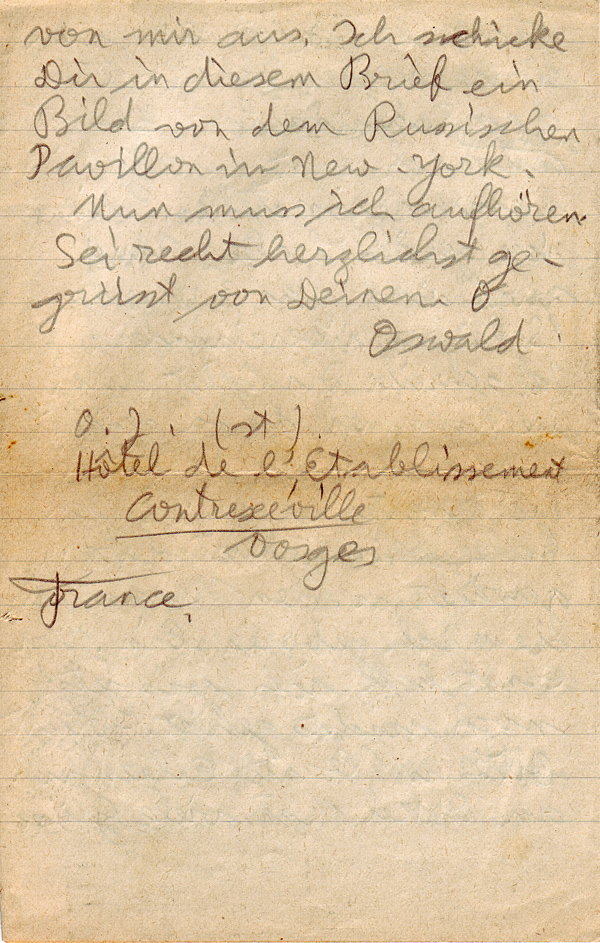 von mir aus. Ich schicke
Dir in diesem Brief ein
Bild von dem Russischen
Pavillon in New-York.
Nun muss ich aufhören.
Sei recht herzlichst ge-
grüsst von Deinem
Oswald
O. J. (st).
Hôtel de l'Etablissement
Contrexéville
Vosges
France.